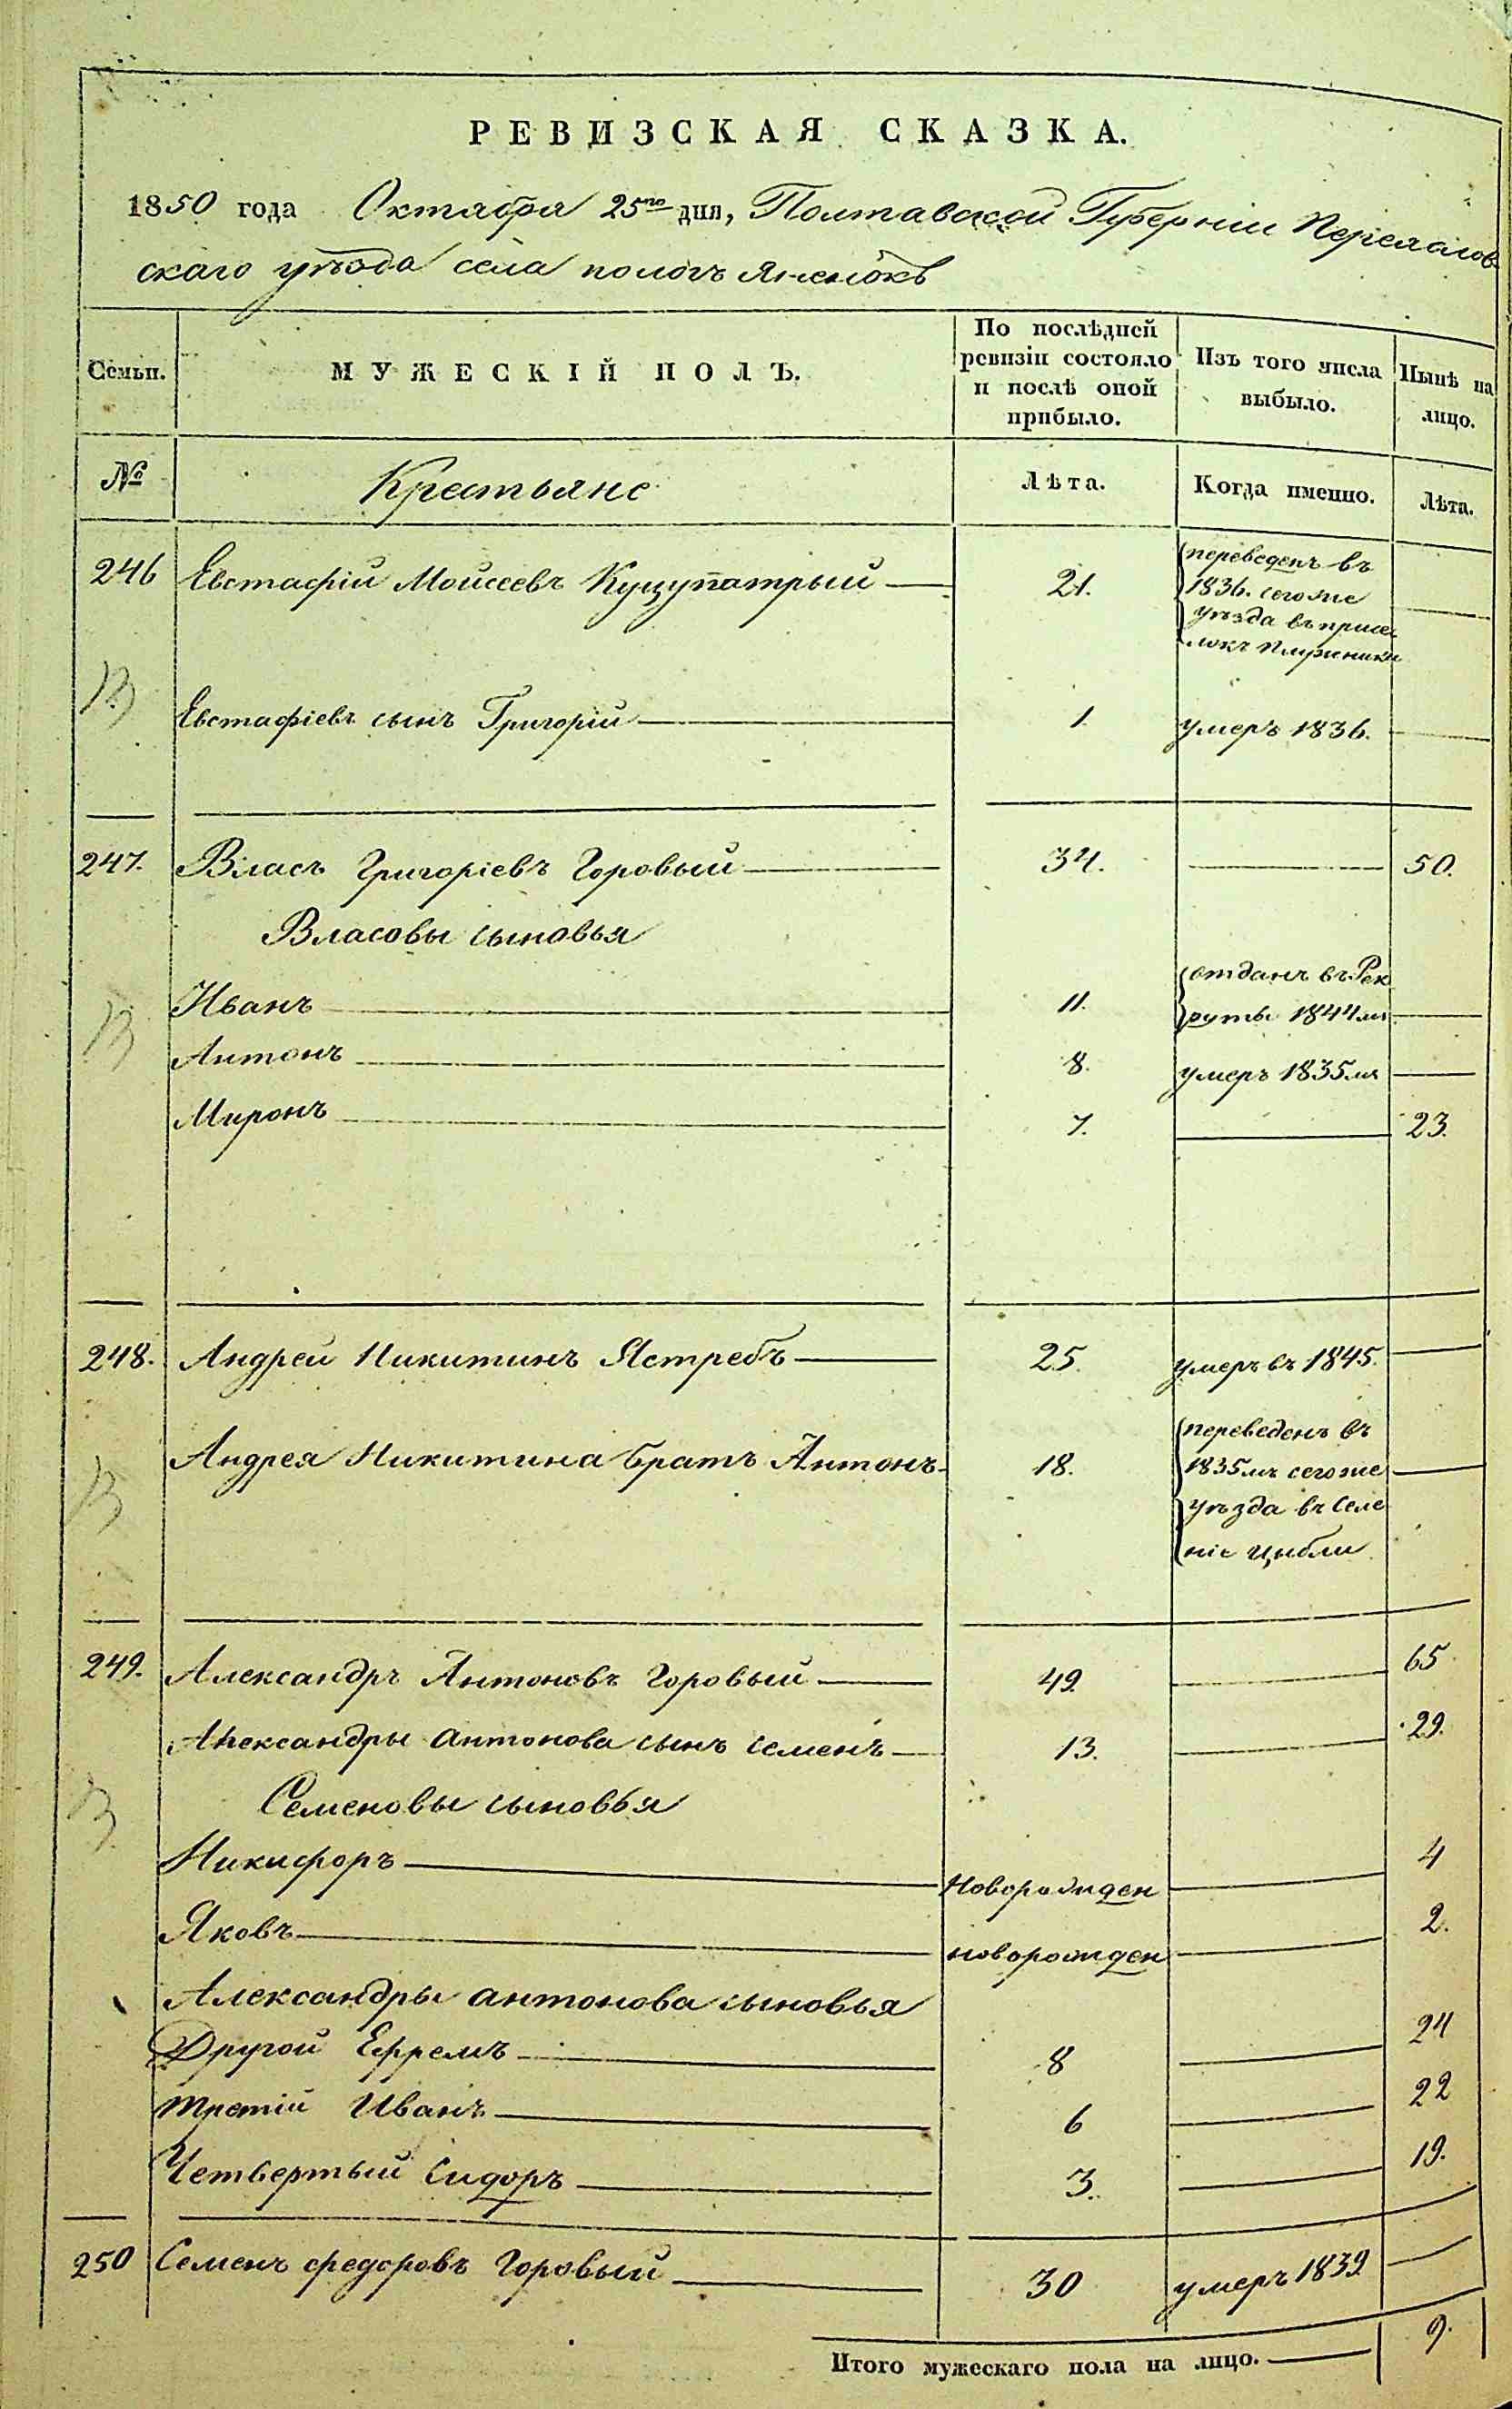 РЕВИЗСКАЯ СКАЗКА.
1850 года Октября 25го дня, Полтавской Губернiи Переяслов
скаго уѣзда села пологъ Яненокъ
Семьи.
МУЖЕСКIЙ ПОЛЪ.
По послѣдней
ревизiи состояло
и послѣ оной
прибыло.
Изъ того числа
выбыло.
Нынѣ на
лицо.
№
Крестьяне
Лѣта.
Когда именно.
Лѣта.
246 Евстафiй Моисеевъ Куцупатрый 21. переведенъ въ
1836. сегоже
уѣзда въ присе
локъ
Евстафiевъ сынъ Григорiй 1. умеръ 1836.
247. Власъ Григорiевъ Горовый 34. 50.
Власовы сыновья
Иванъ 11. отданъ въ Рек
руты 1844мъ
Антонъ 8. умеръ 1835мъ
Миронъ 7. 23.
248. Андрей Никитинъ Ястребъ 25. умеръ въ 1845.
Андрея Никитина братъ Антонъ 18. переведенъ въ
1835мъ сегоже
уѣзда въ Селе
нiе Цибли
249. Александръ Антоновъ Горовый 49. 65
Александры антонова сынъ семенъ 13. 29.
Семеновы сыновья
Никифоръ Новорожден 4
Яковъ новорожден 2.
Александры антонова сыновья
Другой Ефремъ 8 24
третiй Иванъ 6 22
Четвертый Сидоръ 3. 19.
250 Семенъ федоровъ Горовый 30 умеръ 1839
Итого мужескаго пола на лицо. 9.